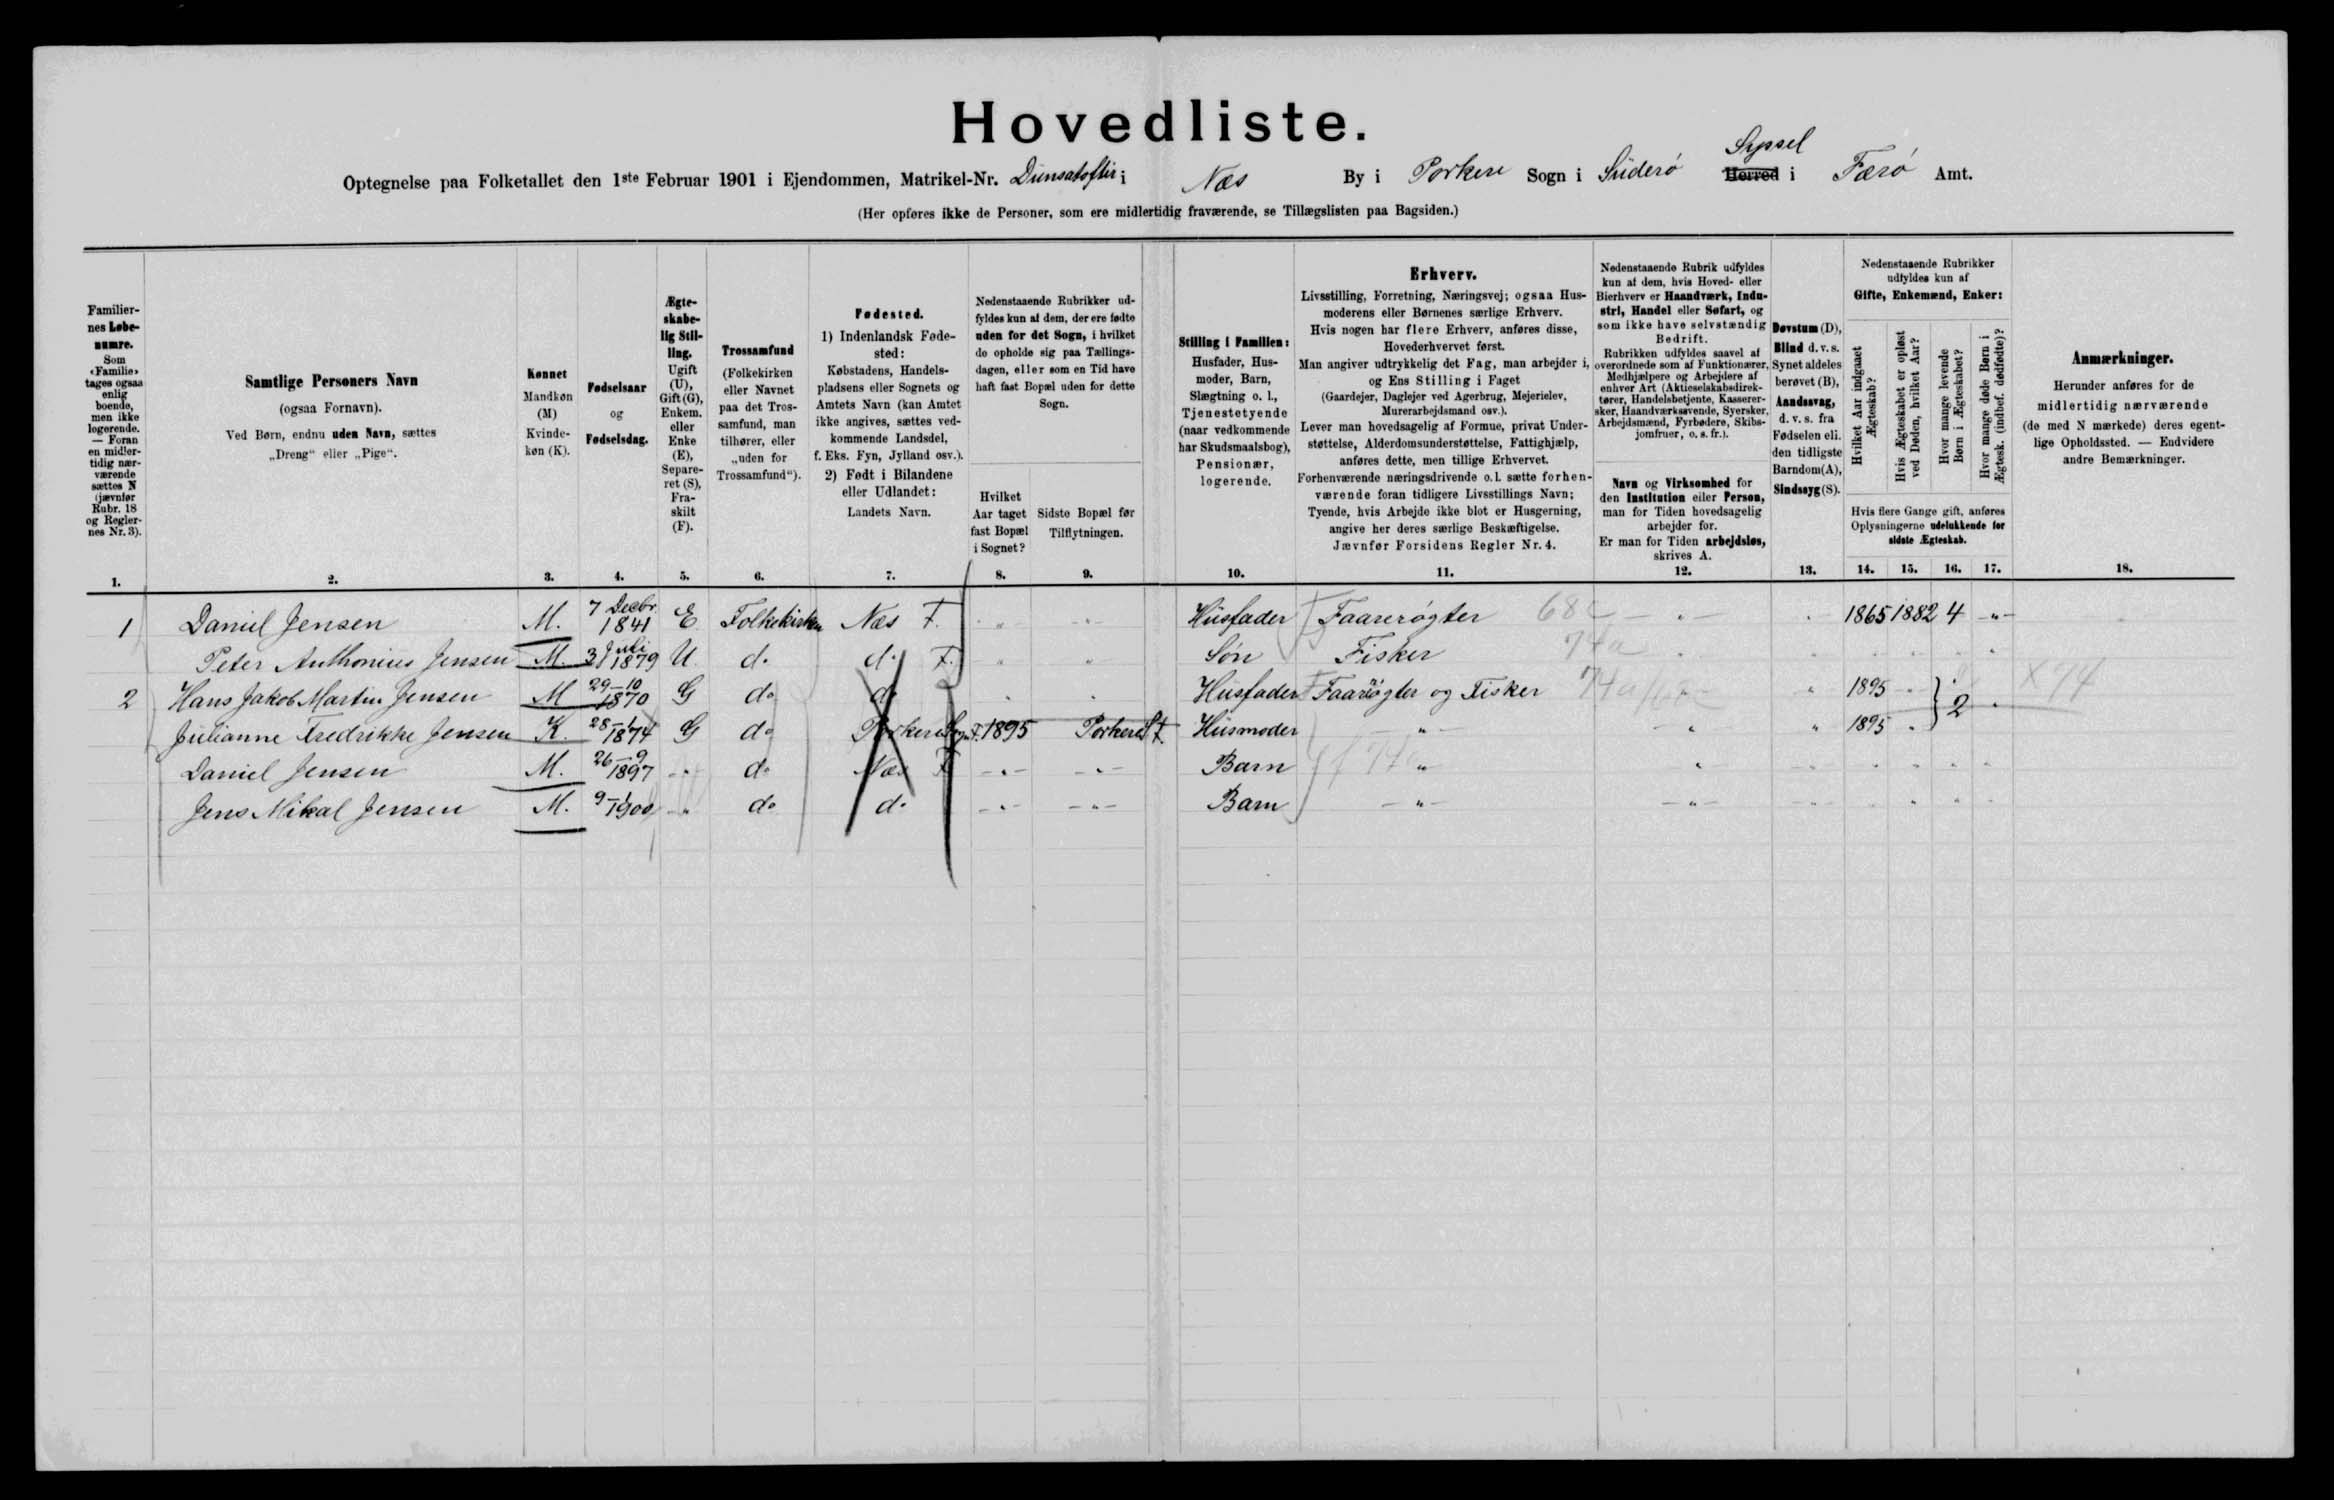 Hovedliste.
Syssel
Optegnelse paa Folketallet den 1ste Februar 1901 i Ejendommen, Matrikel-Nr. Dunsatoftir i Næs By i Porkere Sogn i Süderø Herred i Færø Amt.
(Her opføres ikke de Personer, som ere midlertidig fraværende, se Tillægslisten paa Bagsiden.)
Familier-
nes Løbe-
numre.
Som
«Familie»
tages ogsaa
enlig
boende,
men ikke
logerende.
— Foran
en midler-
tidig nær-
værende
sættes N
(jævnfør
Rubr. 18
og Regler-
nes Nr. 3).
1.
Samtlige Personers Navn
(ogsaa Fornavn).
Ved Børn, endnu uden Navn, sættes
„Dreng“ eller „Pige“.
2.
Kønnet
Mandkøn
(M)
Kvinde-
køn (K).
3.
Fødselsaar
og
Fødselsdag.
4.
Ægte-
skabe-
lig Stil-
ling.
Ugift
(U),
Gift (G),
Enkem.
eller
Enke
(E),
Separe-
ret (S),
Fra-
skilt
(F).
5.
Trossamfund
(Folkekirken
eller Navnet
paa det Tros-
samfund, man
tilhører, eller
„uden for
Trossamfund“).
6.
Fødested.
1) Indenlandsk Føde-
sted:
Købstadens, Handels-
pladsens eller Sognets og
Amtets Navn (kan Amtet
ikke angives, sættes ved-
kommende Landsdel,
f. Eks. Fyn, Jylland osv.).
2) Født i Bilandene
eller Udlandet:
Landets Navn.
7.
Nedenstaaende Rubrikker ud-
fyldes kun af dem, der ere fødte
uden for det Sogn, i hvilket
de opholde sig paa Tællings-
dagen, eller som en Tid have
haft fast Bopæl uden for dette
Sogn.
Hvilket
Aar taget
fast Bopæl
i Sognet?
8.
Sidste Bopæl før
Tilflytningen.
9.
Stilling i Familien:
Husfader, Hus-
moder, Barn,
Slægtning o. l.,
Tjenestetyende
(naar vedkommende
har Skudsmaalsbog),
Pensionær,
logerende.
10.
Erhverv.
Livsstilling, Forretning, Næringsvej; ogsaa Hus-
moderens eller Børnenes særlige Erhverv.
Hvis nogen har flere Erhverv, anføres disse,
Hovederhvervet først.
Man angiver udtrykkelig det Fag, man arbejder i,
og Ens Stilling i Faget
(Gaardejer, Daglejer ved Agerbrug, Mejerielev,
Murerarbejdsmand osv.).
Lever man hovedsagelig af Formue, privat Under-
støttelse, Alderdomsunderstøttelse, Fattighjælp,
anføres dette, men tillige Erhvervet.
Forhenværende næringsdrivende o. l. sætte forhen-
værende foran tidligere Livsstillings Navn;
Tyende, hvis Arbejde ikke blot er Husgerning,
angive her deres særlige Beskæftigelse.
Jævnfør Forsidens Regler Nr. 4.
11.
Nedenstaaende Rubrik udfyldes
kun af dem, hvis Hoved- eller
Bierhverv er Haandværk, Indu-
stri, Handel eller Søfart, og
som ikke have selvstændig
Bedrift.
Rubrikken udfyldes saavel af
overordnede som af Funktionærer,
Medhjælpere og Arbejdere af
enhver Art (Aktieselskabsdirek-
tører, Handelsbetjente, Kasserer-
sker, Haandværkssvende, Syersker,
Arbejdsmænd, Fyrbødere, Skibs-
jomfruer, o. s. fr.).
Navn og Virksomhed for
den Institution eller Person,
man for Tiden hovedsagelig
arbejder for.
Er man for Tiden arbejdsløs,
skrives A.
12.
Døvstum (D),
Blind d. v. s.
Synet aldeles
berøvet (B),
Aandssvag,
d. v. s. fra
Fødselen eli.
den tidligste
Barndom (A),
Sindssyg (S).
13.
Nedenstaaende Rubrikker
udfyldes kun af
Gifte, Enkemænd, Enker:
Hvilket Aar indgaaet
Ægteskab?
Hvis Ægteskabet er opløst
ved Døden, hvilket Aar?
Hvor mange levende
Børn i Ægteskabet?
Hvor mange døde Børn i
Ægtesk. (indbef. dødfødte)?
Hvis flere Gange gift, anføres
Oplysningerne udelukkende for
sidste Ægteskab.
14. 15. 16. 17.
Anmærkninger.
Herunder anføres for de
midlertidig nærværende
(de med N mærkede) deres egent-
lige Opholdssted. — Endvidere
andre Bemærkninger.
18.
1 Daniel Jensen M. 7 Decbr. 1841 E Folkekirken Næs F. - „ - - „ - Husfader Faarerøgter 68c - „ - „ 1865 1882 4 - „ -
Peter Anthonius Jensen M. 3 Juli 1879 U. do do F. „ „ Søn Fisker 74a „
2 Hans Jakob Martin Jensen M 29-10 1870 G do do „ „ Husfader Faarerøgter og Fisker 74a „ „ 1895 „ } 2 „ X 74
Julianne Fredrikke Jensen K. 28-1 1874 G do Porkere Sogn F. 1895 Porkere Husmoder „ „ „ 1895 „
Daniel Jensen M. 26-9 1897 - „ do Næs F - „ - - „ - Barn „ „
Jens Mikal Jensen M. 9-1 1900 - „ do do - „ - - „ - Barn - „ - - „ -